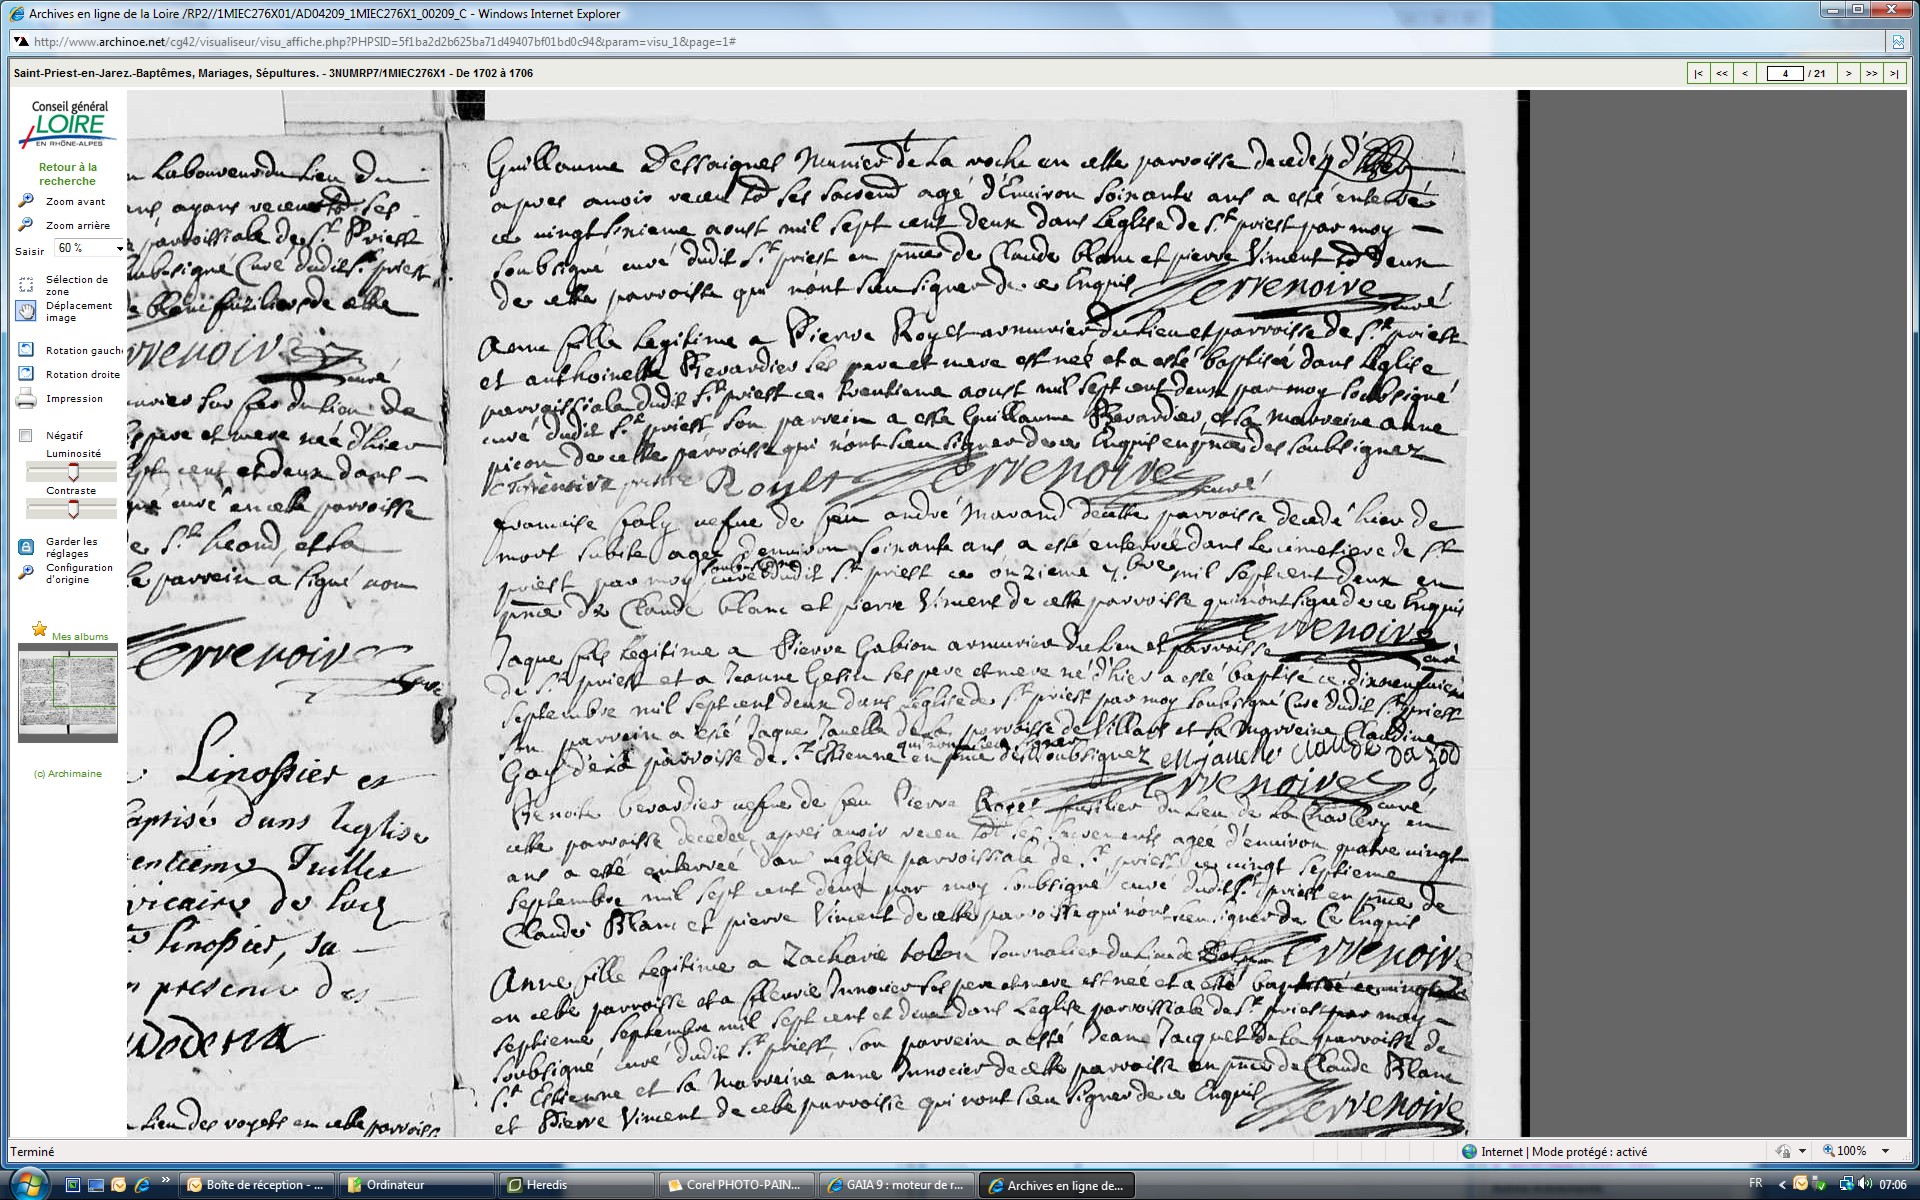 Archives en ligne de la Loire /RP2//1MIEC276X01/AD04209_1MIEC276X1_00209_C - Windows Internet Explorer
http://www.archinoe.net/cg42/visualiseur/visu_affiche.php?PHPSID=5f1ba2d2b625ba71d49407bf01bd0c94&param=visu_1&page=1#
Saint-Priest-en-Jarez.-Baptêmes, Mariages, Sépultures. - 3NUMRP7/1MIEC276X1 - De 1702 à 1706
|< << < 4 / 21 > >> >|
Conseil général
LOIRE
EN RHÔNE-ALPES
Retour à la
recherche
Zoom avant
Zoom arrière
Saisir 60 %
Sélection de
zone
Déplacement
image
Rotation gauche
Rotation droite
Impression
Négatif
Luminosité
Contraste
Garder les
réglages
Configuration
d'origine
Mes albums
(c) Archimaine
laboureur du lieu du
ans, ayans receu ses
parroissiale de St Priest
soubsigné Curé dudit St priest
de cette
curé
du lieu de
pere et mere née d'hier
cent et deux dans
curé en cette parroisse
et la
le parrein a signé non
Terrenoire
Linossier et
baptisé dans leglise
Juillet
vicaire de
linossier, sa
presence de
lieu des royets en cette parroisse
Guillaume Dessaignes Munier de La roche en cette parroisse decedé
apres avoir receu ses sacremts agé d'Environ soixante ans a esté enterré
ce vingt sixieme aoust mil sept cent deux dans Leglise de St priest par moy
soubsigné curé dudit St priest en pnce de Claude blanc et pierre Viment deux
de cette parroisse qui n'ont sceu signer de ce Enquis Terrenoire curé
Anne fille Legitime a Pierre Royet armurier du lieu et parroisse de St priest
et anthoinette Berardier ses pere et mere est née et a esté baptisée dans L'eglise
parroissiale dudit St priest ce trentieme aoust mil sept cent deux par moy soubsigné
curé dudit St priest son parrein a esté Guillaume Berardier, et la marreine anne
picon de cette parroisse qui n'ont sceu signer de ce Enquis en pnce des soubsignez
Terrenoire prestre Royet Terrenoire curé
françoise faly vefve de feu andré Marand de cette parroisse decedé hier de
mort subite agee d'environ soixante ans, a esté enterrée dans le cimetiere de St
priest par moy soubsigné curé dudit St priest ce onzieme 7.bre mil sept cent deux en
pnce de Claude blanc et pierre Viment de cette parroisse qui n'ont signé de ce Enquis
Terrenoire curé
Jaque fils Legitime a Pierre Gabion armurier du lieu et parroisse
de St priest et a Jeanne Gesin ses pere et mere né d'hier a esté baptisé ce dixneufvieme
septembre mil sept cent deux dans leglise de St priest par moy soubsigné Curé dudit St priest
son parrein a esté Jaque de la parroisse de Villars et la Marreine Claudine
Gay de la parroisse de St Estienne qui n'ont sceu signer en pnce des soubsignez claude
Terrenoire curé
Benoite berardier vefve de feu Pierre Royet fusilier du lieu de La en
cette parroisse decedée apres avoir receu ses sacrements agée d'environ quatre vingt
ans a esté enterrée dans leglise parroissiale de St priest ce vingt septieme
septembre mil sept cent deux par moy soubsigné curé dudit St priest en pnce de
Claude Blanc et pierre Viment de cette parroisse qui n'ont sceu signer de Ce Enquis
Terrenoire
Anne fille Legitime a Zacharie Journalier du lieu de
en cette parroisse et a fleurie Innocier ses pere et mere est née et a esté baptisée ce vingt
septieme septembre mil sept cent et deux dans Leglise parroissiale de St priest par moy
soubsigné curé dudit St priest, son parrein a esté Jeane Jacquet de la parroisse de
St Estienne et sa Marreine anne Innocier de cette parroisse en pnce de Claude Blanc
et Pierre Viment de cette parroisse qui n'ont sceu signer de ce Enquis Terrenoire
Terminé
Internet | Mode protégé : activé
100%
Boîte de réception - ...
Ordinateur
Heredis
Corel PHOTO-PAIN...
GAIA 9 : moteur de r...
Archives en ligne de...
FR
07:06